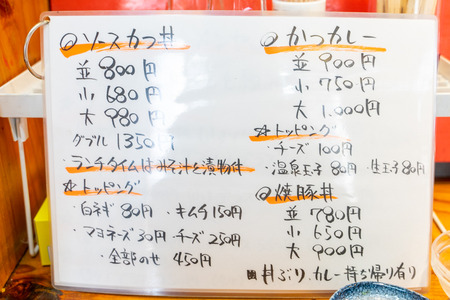 ◎ソースカツ丼
並 800円
小 680円
大 980円
ダブル 1350円
・ランチタイムは みそ汁と漬物付
☆トッピング
・白ネギ 80円 ・キムチ 150円
・マヨネーズ 30円 ・チーズ 250円
・全部のせ 450円
◎カツカレー
並 900円
小 750円
大 1,000円
☆トッピング
・チーズ 100円
・温泉玉子 80円 ・生玉子 80円
◎焼豚丼
並 780円
小 650円
大 900円
丼ぶり、カレー
帰り有り